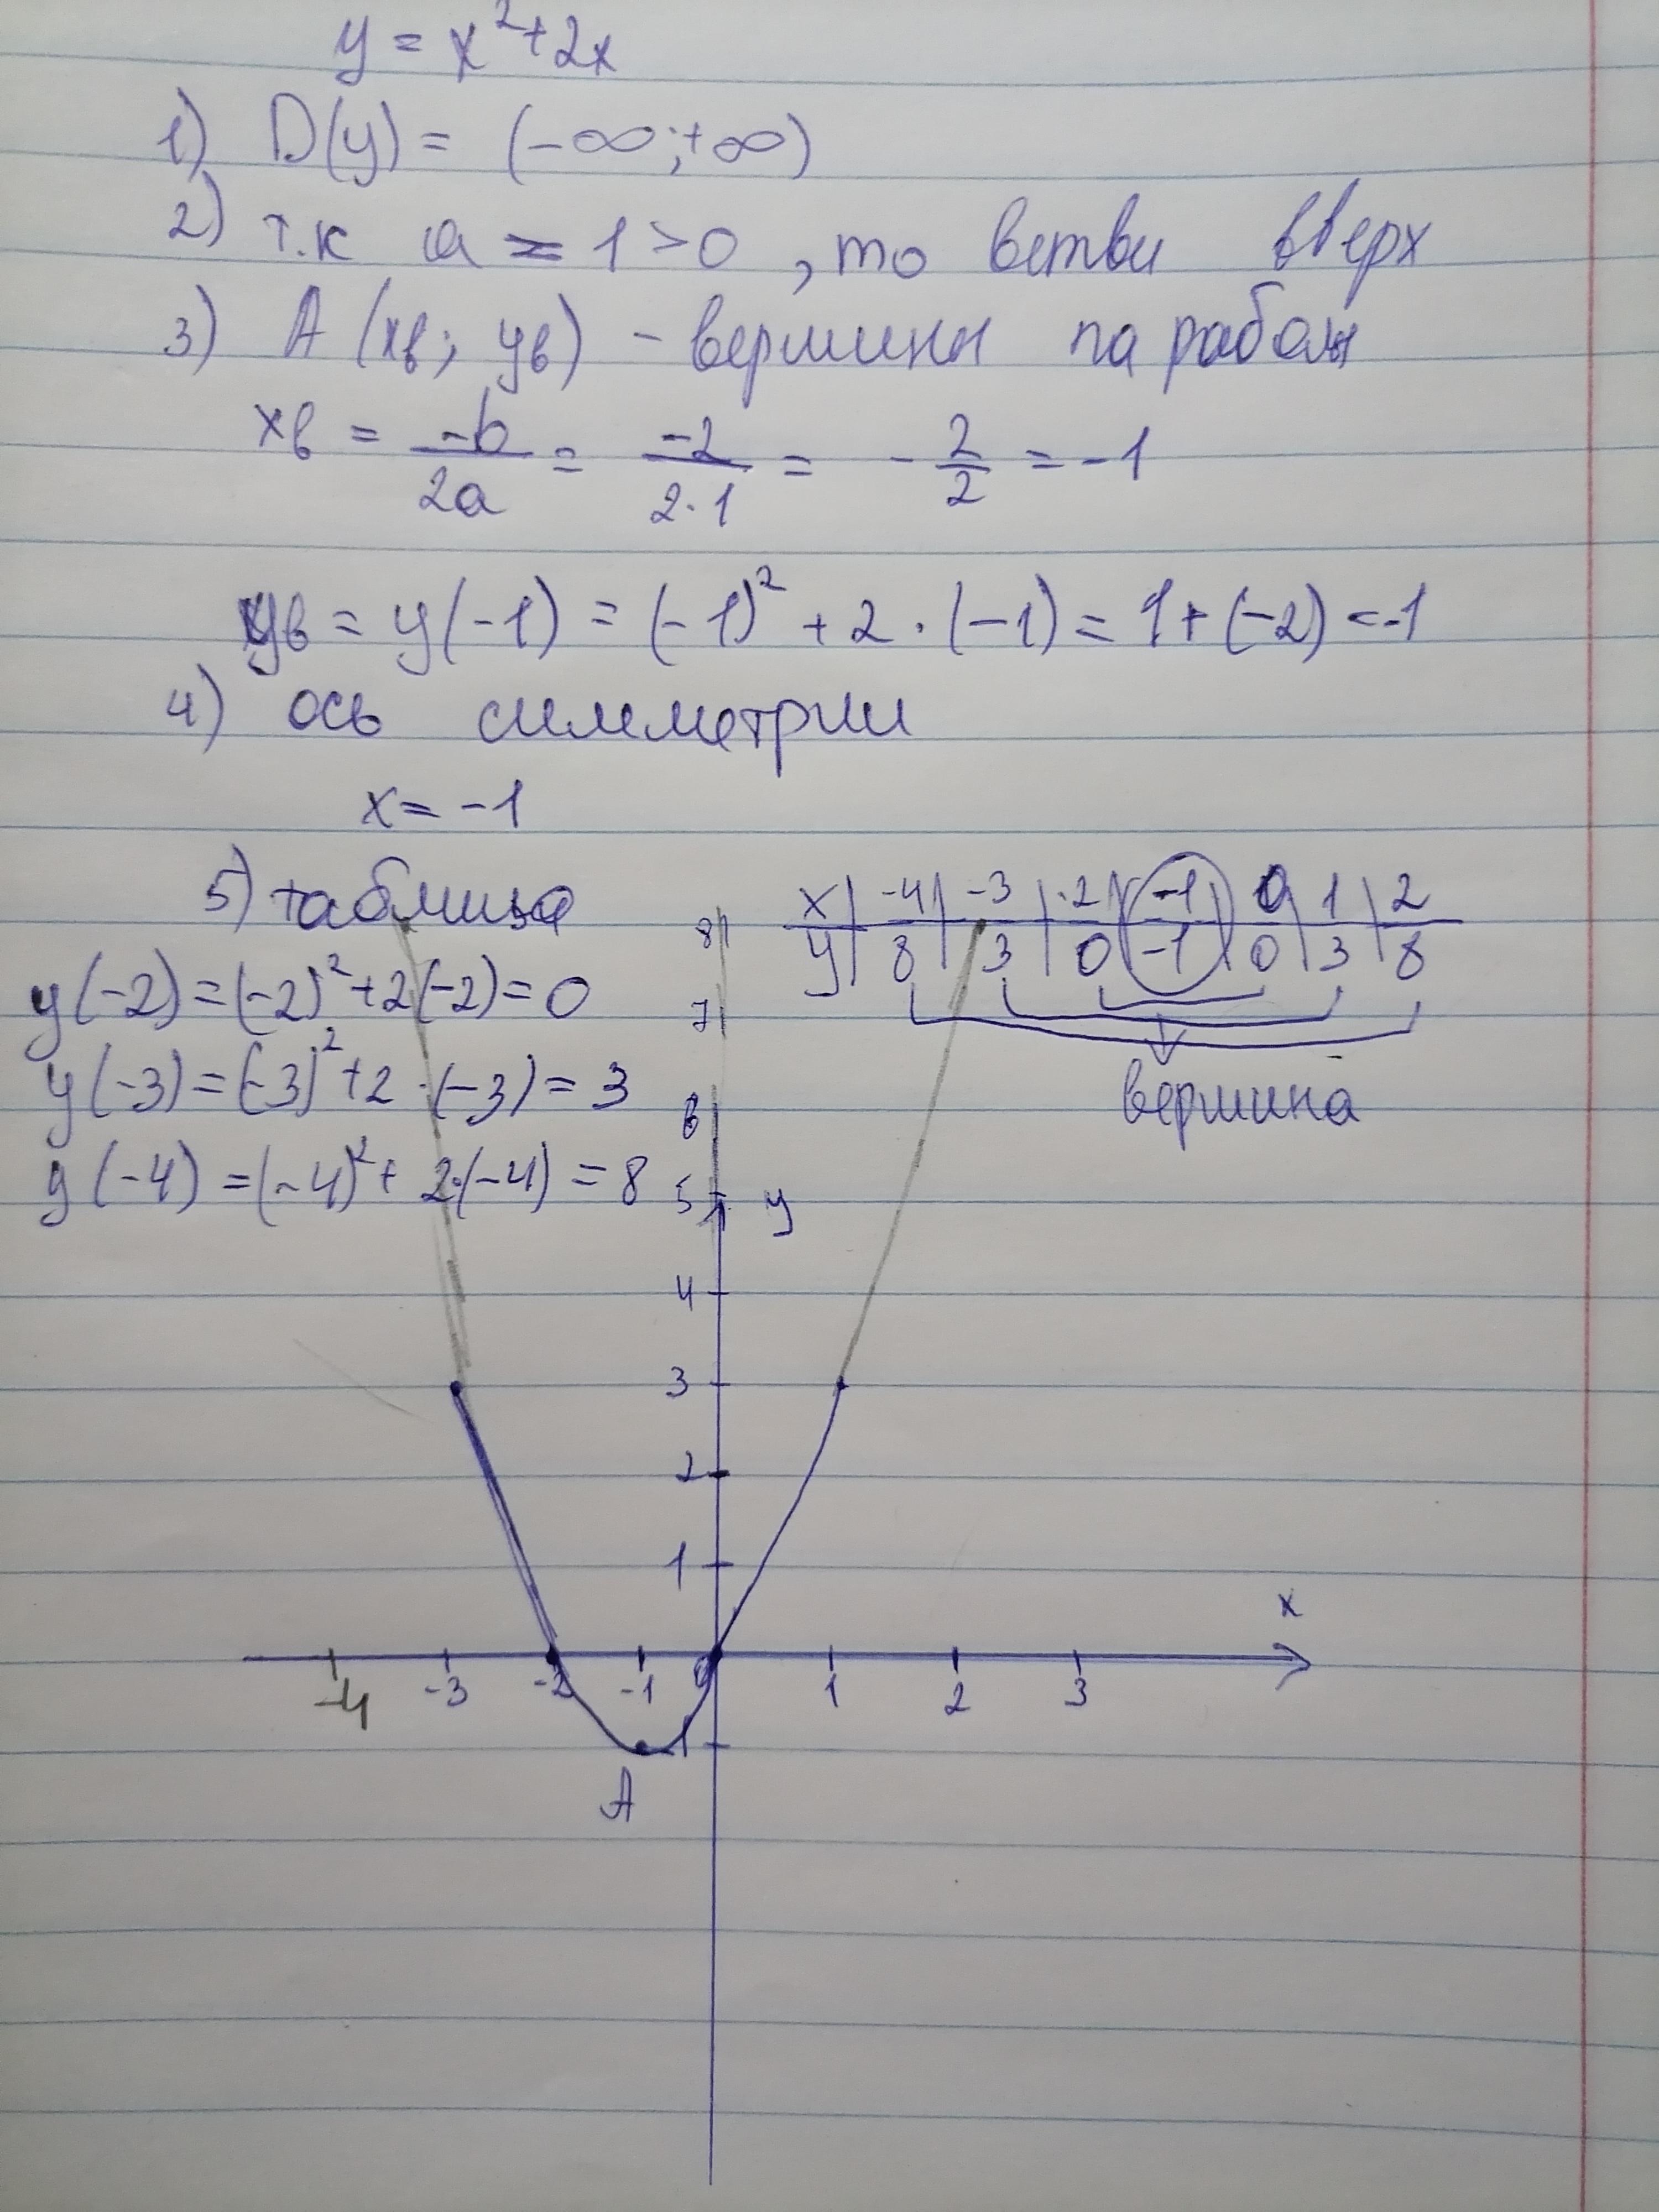 y = x²+2x
1) D(y) = (-∞;+∞)
2) т.к a = 1 > 0 , то ветви вверх
3) A (xв; yв) - вершины параболы
xв = -b/2a = -2/2·1 = - 2/2 = -1
yв = y(-1) = (-1)² + 2 · (-1) = 1 + (-2) = -1
4) ось симметрии
x = -1
5) таблица
x | -4 | -3 | -2 | -1 | 0 | 1 | 2
y | 8 | 3 | 0 | -1 | 0 | 3 | 8
вершина
y(-2) = (-2)² + 2(-2) = 0
y(-3) = (-3)² + 2 · (-3) = 3
y(-4) = (-4)² + 2·(-4) = 8
8
7
6
5 y
4
3
2
1
x
-4 -3 -2 -1 0 1 2 3
-1
A